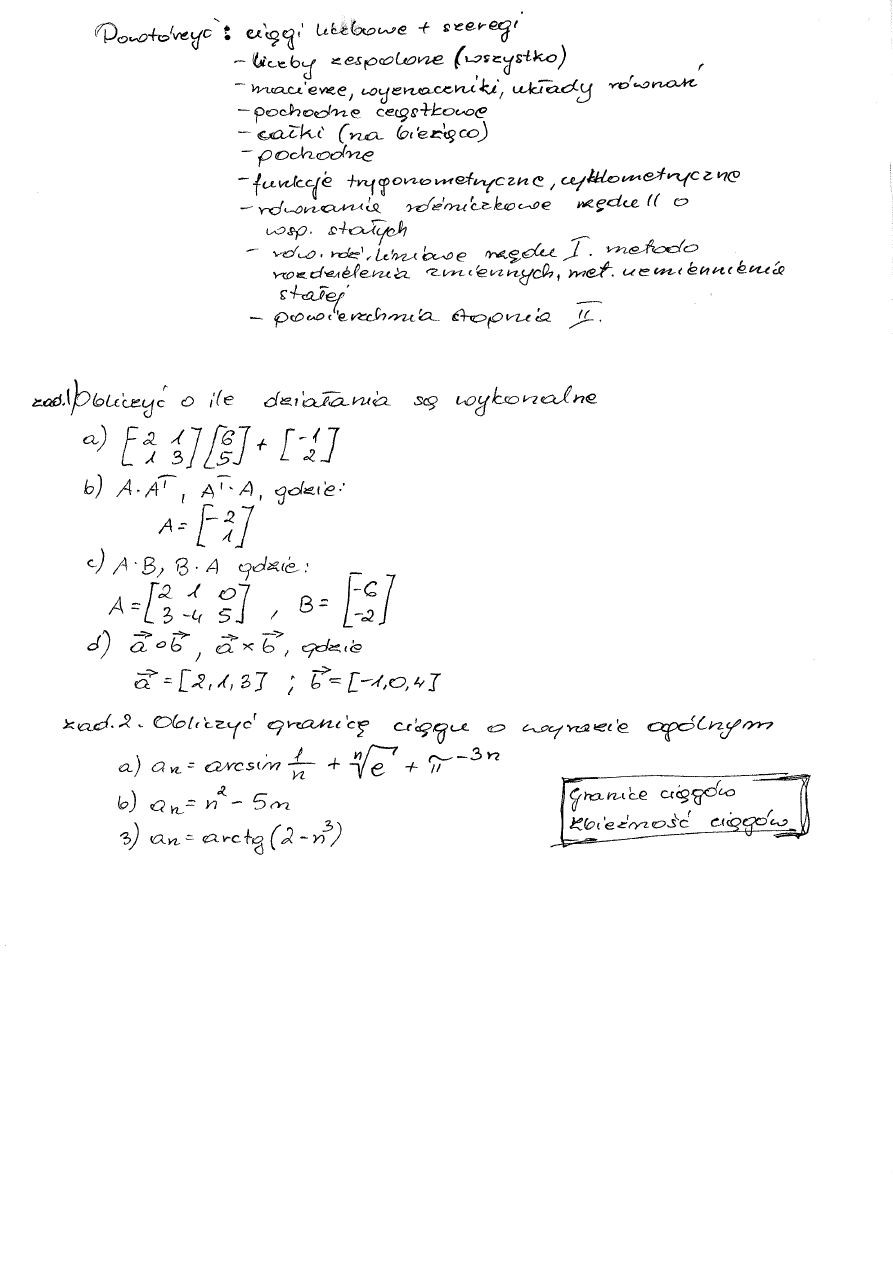 Powtórzyć: ciągi liczbowe + szeregi
- liczby zespolone (wszystko)
- macierze, wyznaczniki, układy równań
- pochodne cząstkowe
- całki (na bieżąco)
- pochodne
- funkcje trygonometryczne, cyklometryczne
- równanie różniczkowe rzędu II o
wsp. stałych
- rów. róż. liniowe rzędu I. metodo
rozdzielenia zmiennych, met. uzmiennienia
stałej
- powierzchnia stopnia II.
zad.1) Obliczyć o ile działania są wykonalne
a) [2 1] [6] + [-1]
[1 3] [5] [2]
b) A·Aᵀ, Aᵀ·A, gdzie:
A = [-2]
[1]
c) A·B, B·A gdzie:
A = [2 1 0] , B = [-6]
[3 -4 5] [-2]
d) a⃗ ∘ b⃗, a⃗ × b⃗, gdzie
a⃗ = [2,1,3] ; b⃗ = [-1,0,4]
zad.2. Obliczyć granicę ciągu o wyrazie ogólnym
a) aₙ = arcsin 1/n + ⁿ√e + π⁻³ⁿ
b) aₙ = n² - 5n
3) aₙ = arctg(2-n³)
Granice ciągów
Zbieżność ciągów